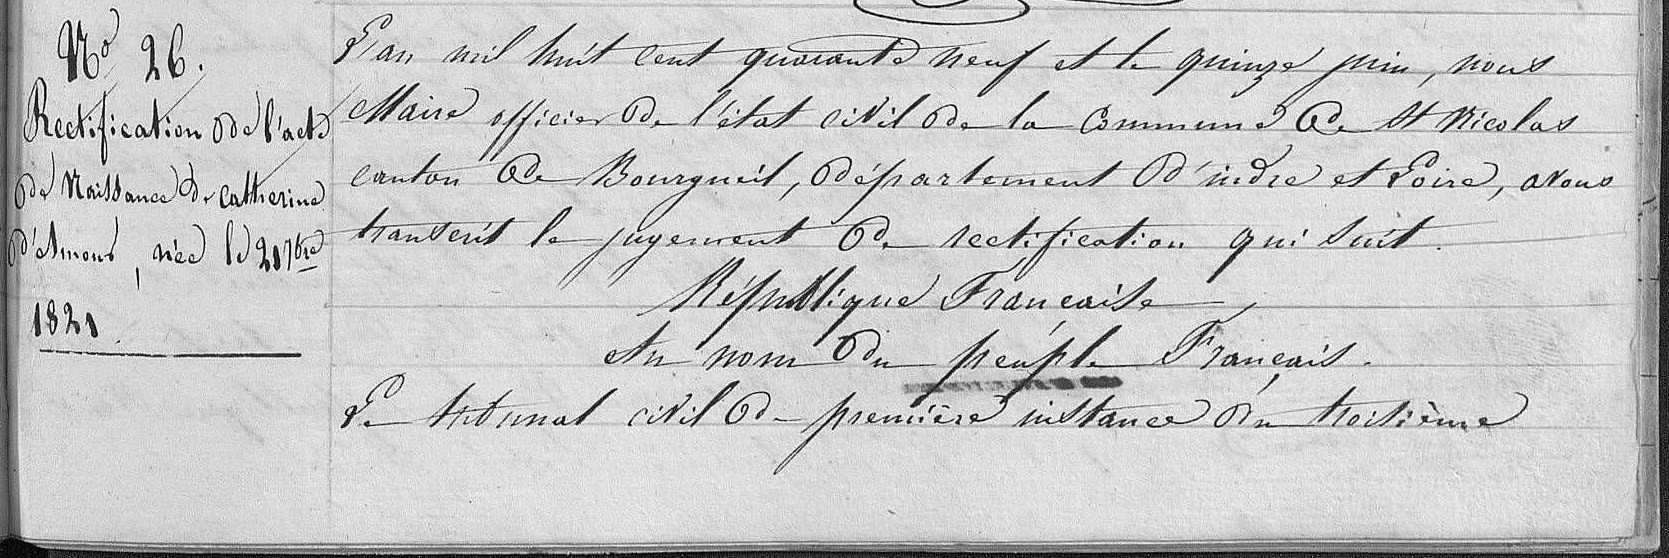 No 26.
Rectification de l'acte
de Naissance de Catherine
née le 21 7bre
1821
L'an mil huit cent quarante neuf et le quinze juin, nous
Maire officier de l'état civil de la Commune de St Nicolas
canton de Bourgueil, département d'indre et Loire, avons
transcrit le jugement de rectification qui suit.
République Française
Au nom du peuple Français.
Le tribunal civil de première instance du troisième